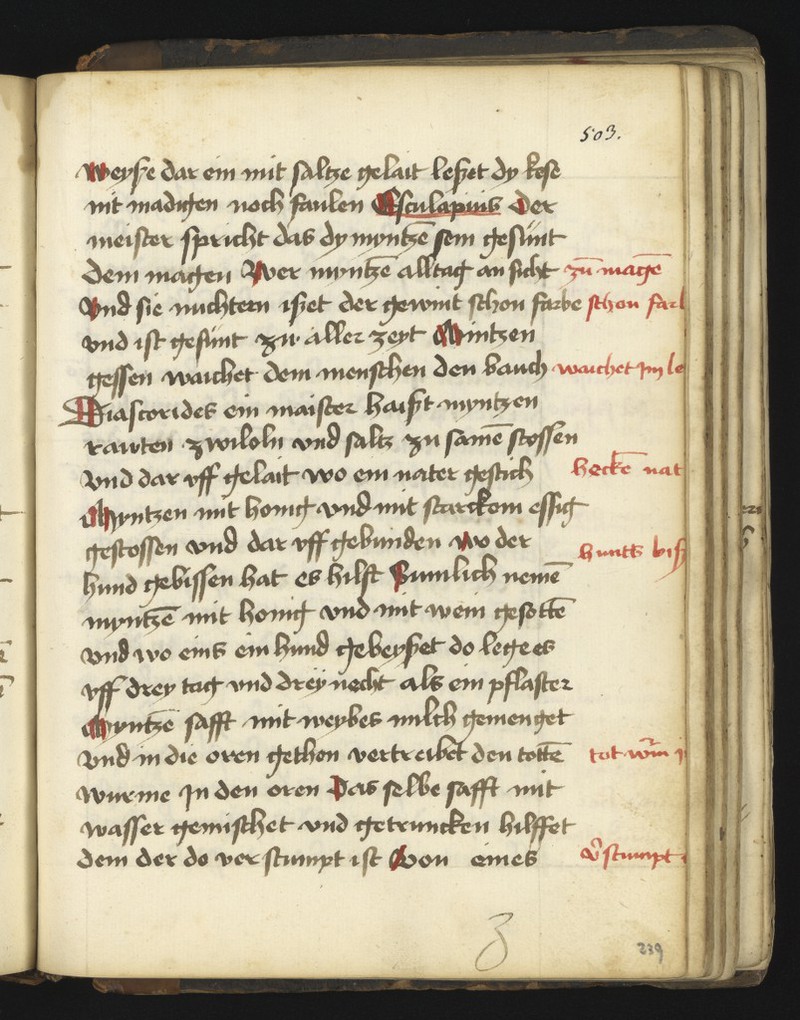 503.
Weyße dar ein mit saltze gelait leßet dy kese
nit madigen noch faulen Esculapius Der
meister spricht das dy myntzē sein gesünt
dem magen Wer myntzē alltag an sicht zū magē
Vnd sie nuchtern ißet der gewint schon farbe schon farb
vnd ist gesünt zü aller zeyt Mintzen
gessen waichet dem menschen den bauch waichet Im le
Diascorides ein maister haißt myntzen
rawten zwiloln vnd saltz zu samē stossen
vnd dar vff gelait wo ein nater gestich heckē nat
Myntzen mit honig vnd mit starckem essig
gestossen vnd dar vff gebunden wo der
hund gebissen hat es hilft Sumlich nemē hunts biß
myntzē mit honig vnd mit wein gesottē
vnd wo eins ein hund gebeyßet do lege es
vff drey tag vnd dreÿ necht als ein pflaster
Myntzē safft mit weybes milch gemenget
vnd in die oren gethon vertreibet den tottē tot wūrm j
wurme Jn den oren Das selbe safft mit
wasser gemischet vnd getruncken hilffet
dem der do verstumpt ist Von eines v̄stumpt
3
239